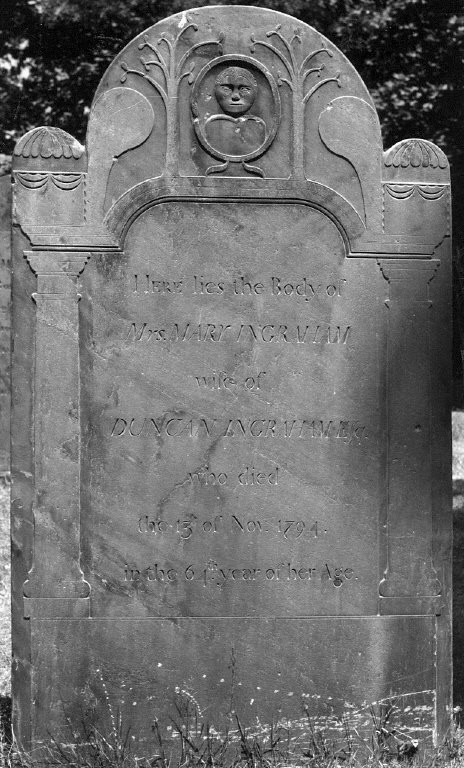 HERE lies the Body of
Mrs. MARY INGRAHAM
wife of
DUNCAN INGRAHAM Esq.
who died
the 13th of Nov. 1794.
in the 64th year of her Age.